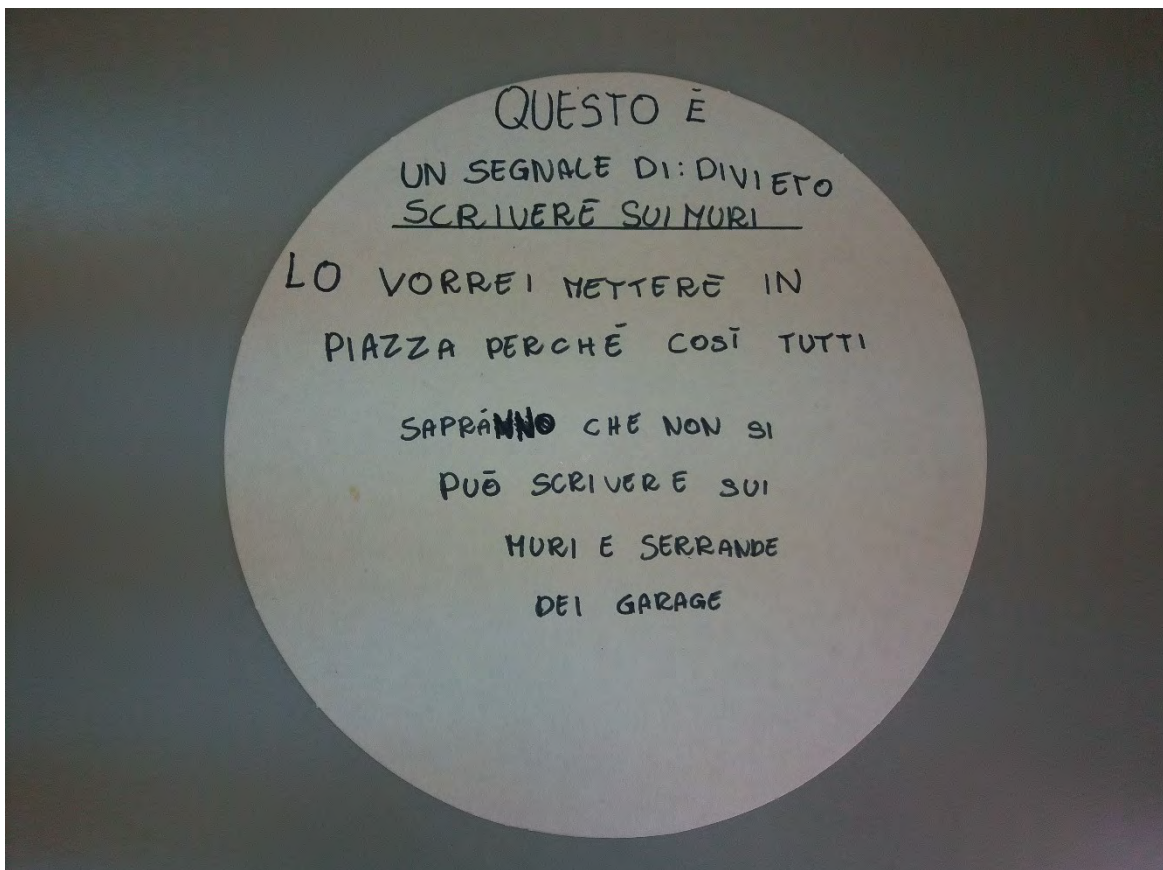 QUESTO È
UN SEGNALE DI: DIVIETO
SCRIVERE SUI MURI
LO VORREI METTERE IN
PIAZZA PERCHÉ COSÌ TUTTI
SAPRÁNNO CHE NON SI
PUÒ SCRIVERE SUI
MURI E SERRANDE
DEI GARAGE